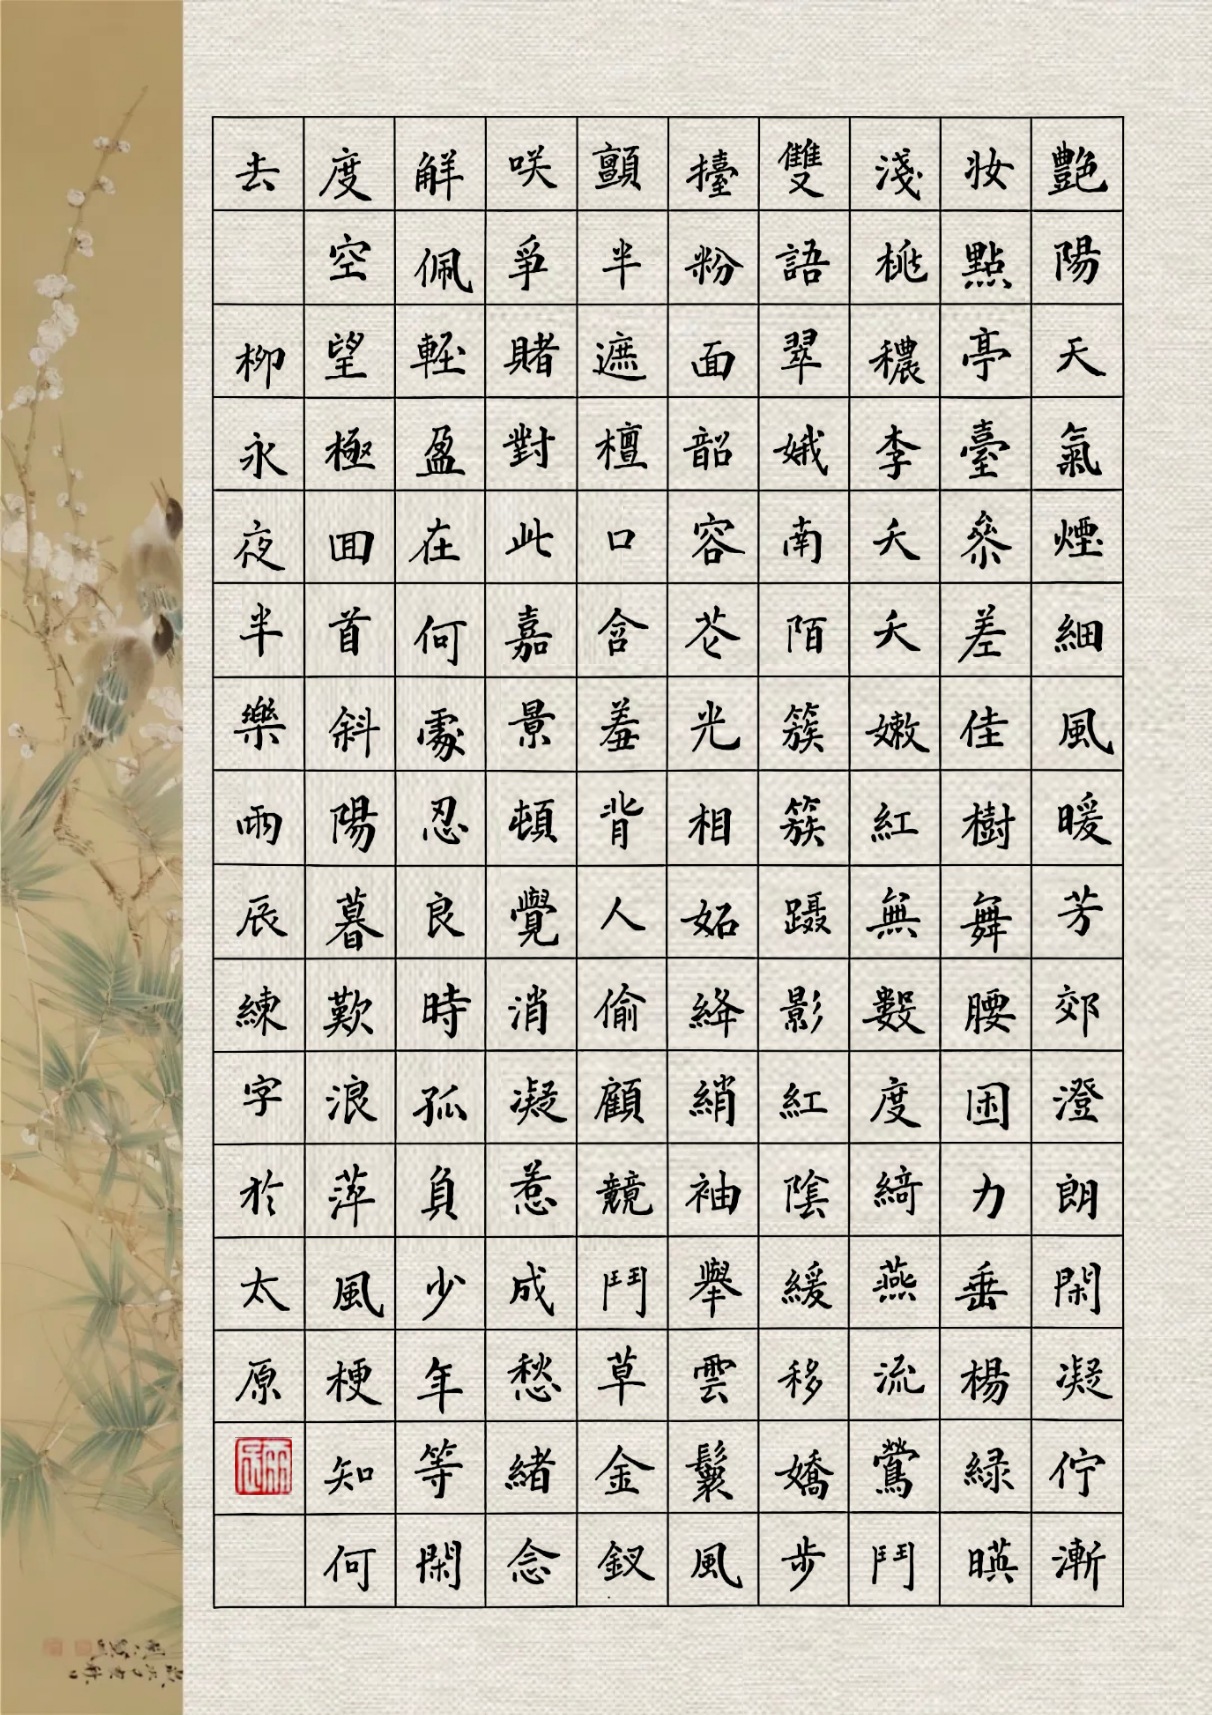 艷陽天氣煙細風暖芳郊澄朗閑凝佇漸
妆點亭臺叅差佳樹舞腰困力垂楊緑暎
淺桃穠李夭夭嫩紅無數度綺燕流鶯鬥
雙語翠娥南陌簇簇蹑影紅陰緩移嬌步
擡粉面韶容花光相妬絳綃袖舉雲鬟風
顫半遮檀口含羞背人偷顧競鬥草金釵
咲爭賭對此嘉景頓覺消凝惹成愁緒念
解佩輕盈在何處忍良時孤負少年等閑
度空望極回首斜陽暮歎浪萍風梗知何
去 柳永夜半樂雨辰練字於太原